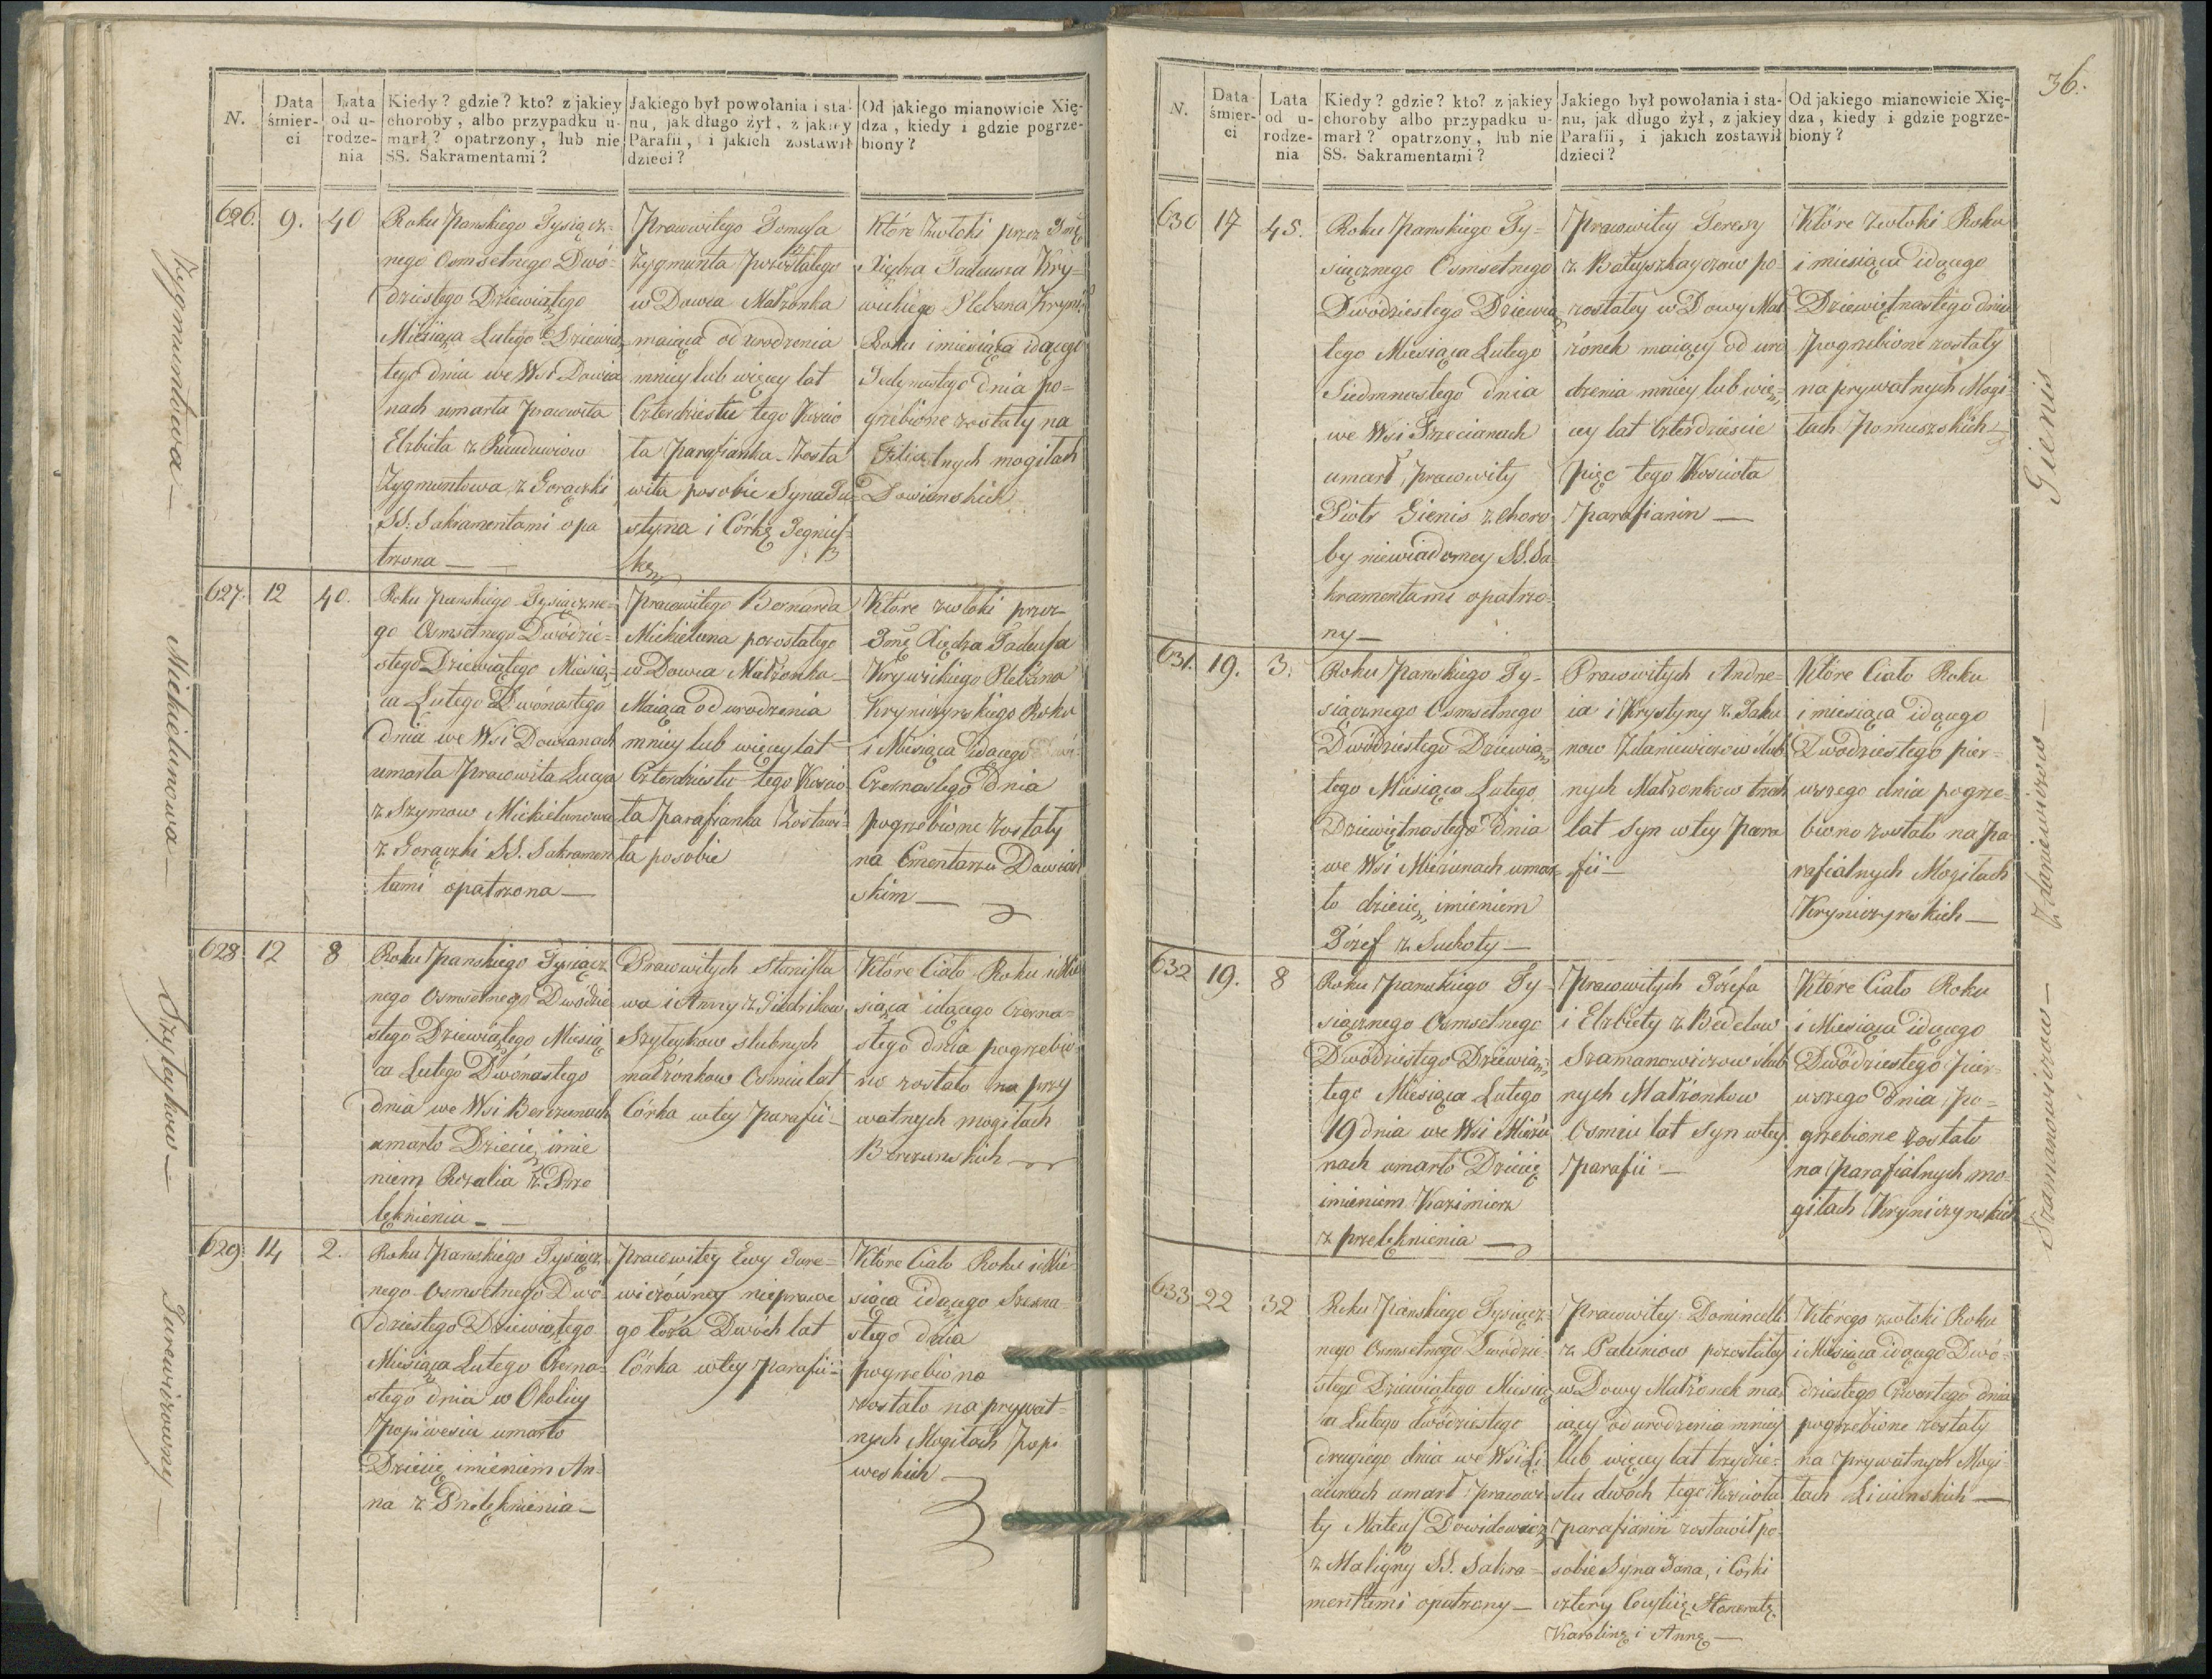 N.
Data śmier-ci
Lata od u-rodze-nia
Kiedy? gdzie? kto? z jakiey
choroby, albo przypadku u-
marł? opatrzony, lub nie
SS. Sakramentami?
Jakiego był powołania i sta-
nu, jak długo żył, z jakiey
Parafii, i jakich zostawił
dzieci?
Od jakiego mianowicie Xię-
dza, kiedy i gdzie pogrze-
biony?
Zygmuntowa —
626. 9. 40
Roku Pańskiego Tysiącz-
nego Osmsetnego Dwó-
dziestego Dziewiątego
Miesiąca Lutego Dziewią
tego dnia we Wsi Dowia
nach umarła Pracowita
Elżbieta z
Zygmuntowa z Gorączki
SS. Sakramentami opa
trzona —
Pracowitego Tomasza
Zygmunta pozostałego
w Dowia Małżonka
maiąca od urodzenia
mniey lub więcey lat
Czterdziestu tego Kościo
ła Parafianka Zosta
wiła posobie Syna Ju
styna i Córkę
Które Zwłoki przez Jmę
Xiędza Tadeusza Kry-
wickiego Plebana
Roku i miesiąca idącego
Jedynastego dnia po-
grzebione zostały na
Filialnych mogiłach
Dowianskich
Mickielunowa —
627. 12 40.
Roku Pańskiego Tysiączne-
go Osmsetnego Dwódzie-
stego Dziewiątego Miesią-
ca Lutego Dwónastego
dnia we Wsi Dowianach
umarła Pracowita Łucya
z Szymow Mickielunowa
z Gorączki SS. Sakramen
tami opatrzona —
Pracowitego Bernarda
Mickieluna pozostałego
w Dowia Małżonka —
Maiąca od urodzenia
mniey lub więcey lat
Czterdziestu tego Kościo
ła Parafianka Zostawi-
ła posobie
Które zwłoki przez
Jmę Xiędza Tadeusza
Krywickiego Plebana
Kryniczynskiego Roku
i Miesiąca idącego
Czernastego Dnia
pogrzebione Zostały
na Cmentarzu Dowian
skim —
Szytykow —
628. 12 8
Roku Pańskiego Tysiącz
nego Osmsetnego Dwódzie
stego Dziewiątego Miesią
ca Lutego Dwónastego
dnia we Wsi Berżunach
umarło Dziecię imie
niem Rozalia z Prze
lęknienia —
Pracowitych Stanisła
wa i Anny z Giedrikow
Szytykow slubnych
małżónkow Ósmiu lat
Córka wtey Parafii —
Które Ciało Roku i Mie
siąca idącego Czerna-
stego dnia pogrzebio
no zostało na pry
watnych mogiłach
Berżunskich —
Jurewiczowny —
629. 14 2.
Roku Pańskiego Tysiącz
nego Osmsetnego Dwó
dziestego Dziewiątego
Miesiąca Lutego Czerna-
stego dnia w Okolicy
Popiwesiu umarło
Dziecię imieniem An-
na z Przelęknienia —
Pracowitey Ewy Jure-
wiczówney nieprawe
go łoża Dwóch lat
Córka wtey Parafii —
Które Ciało Roku i Mie
siąca idącego Szesna-
stego dnia
pogrzebiono
zostało na prywat-
nych Mogiłach Popi
weskich —
36.
N.
Data śmier-ci
Lata od u-rodze-nia
Kiedy? gdzie? kto? z jakiey
choroby albo przypadku u-
marł? opatrzony, lub nie
SS. Sakramentami?
Jakiego był powołania i sta-
nu, jak długo żył, z jakiey
Parafii, i jakich zostawił
dzieci?
Od jakiego mianowicie Xię-
dza, kiedy i gdzie pogrze-
biony?
630 17 45.
Roku Pańskiego Ty-
siącznego Osmsetnego
Dwódziestego Dziewią
tego Miesiąca Lutego
Siedmnastego dnia
we Wsi Trzecianach
umarł Pracowity
Piotr Gienis z choro
by niewiadomey SS. Sa
kramentami opatrzo-
ny —
Pracowitey Teresy
z po-
zostałey w Dowy Mał
żonek maiący od uro
dzenia mniey lub wię-
cey lat Czterdzieście
pięc tego Kościoła
Parafianin —
Które zwłoki Roku
i miesiąca idącego
Dziewiętnastego dnia
pogrzebione zostały
na prywatnych Mogi
łach Pomuszskich —
Gienis —
631. 19. 3.
Roku Pańskiego Ty-
siącznego Osmsetnego
Dwódziestego Dziewią-
tego Miesiąca Lutego
Dziewiętnastego dnia
we Wsi Mieżunach umar
ło dziecię imieniem
Józef z Suchoty —
Pracowitych Andrze-
ia i Krystyny z Jaku
now Zdaniewiczow slub
nych Małżonkow trzech
lat Syn wtey Para
fii —
Które Ciało Roku
i miesiąca idącego
Dwódziestego pier-
wszego dnia pogrze-
biono zostało na Pa
rafialnych Mogiłach
Kryniczynskich —
Zdaniewiczow —
632 19. 8
Roku Pańskiego Ty-
siącznego Osmsetnego
Dwódziestego Dziewią-
tego Miesiąca Lutego
19 dnia we Wsi Mieżu
nach umarło Dziecię
imieniem Kazimierz
z przelęknienia —
Pracowitych Józefa
i Elżbiety z Bedelow
Szamanowiczow slub
nych Małżonkow
Ósmiu lat Syn wtey
Parafii —
Które Ciało Roku
i Miesiąca idącego
Dwódziestego Pier-
wszego dnia po-
grzebione zostało
na Parafialnych mo-
giłach Kryniczynskich
Szamanowiczow —
633 22 32
Roku Pańskiego Tysiącz-
nego Osmsetnego Dwódzie-
stego Dziewiątego Miesią
ca Lutego dwódziestego
drugiego dnia we Wsi Li
ciunach umarł Pracowi
ty Mateusz Dowidowicz
z Maligny SS. Sakra-
mentami opatrzony —
Pracowitey Domincelli
z Paluniow pozostałey
w Dowy Małżonek ma
iący od urodzenia mniey
lub więcey lat trzydzie-
stu dwóch tego Kościoła
Parafianin zostawił po
sobie Syna Jana, i Córki
cztery Cecylię Honoratę
Karolinę i Annę —
Którego zwłoki Roku
i Miesiąca idącego Dwó-
dziestego Czwartego dnia
pogrzebione zostały
na prywatnych Mogi-
łach Liciunskich —